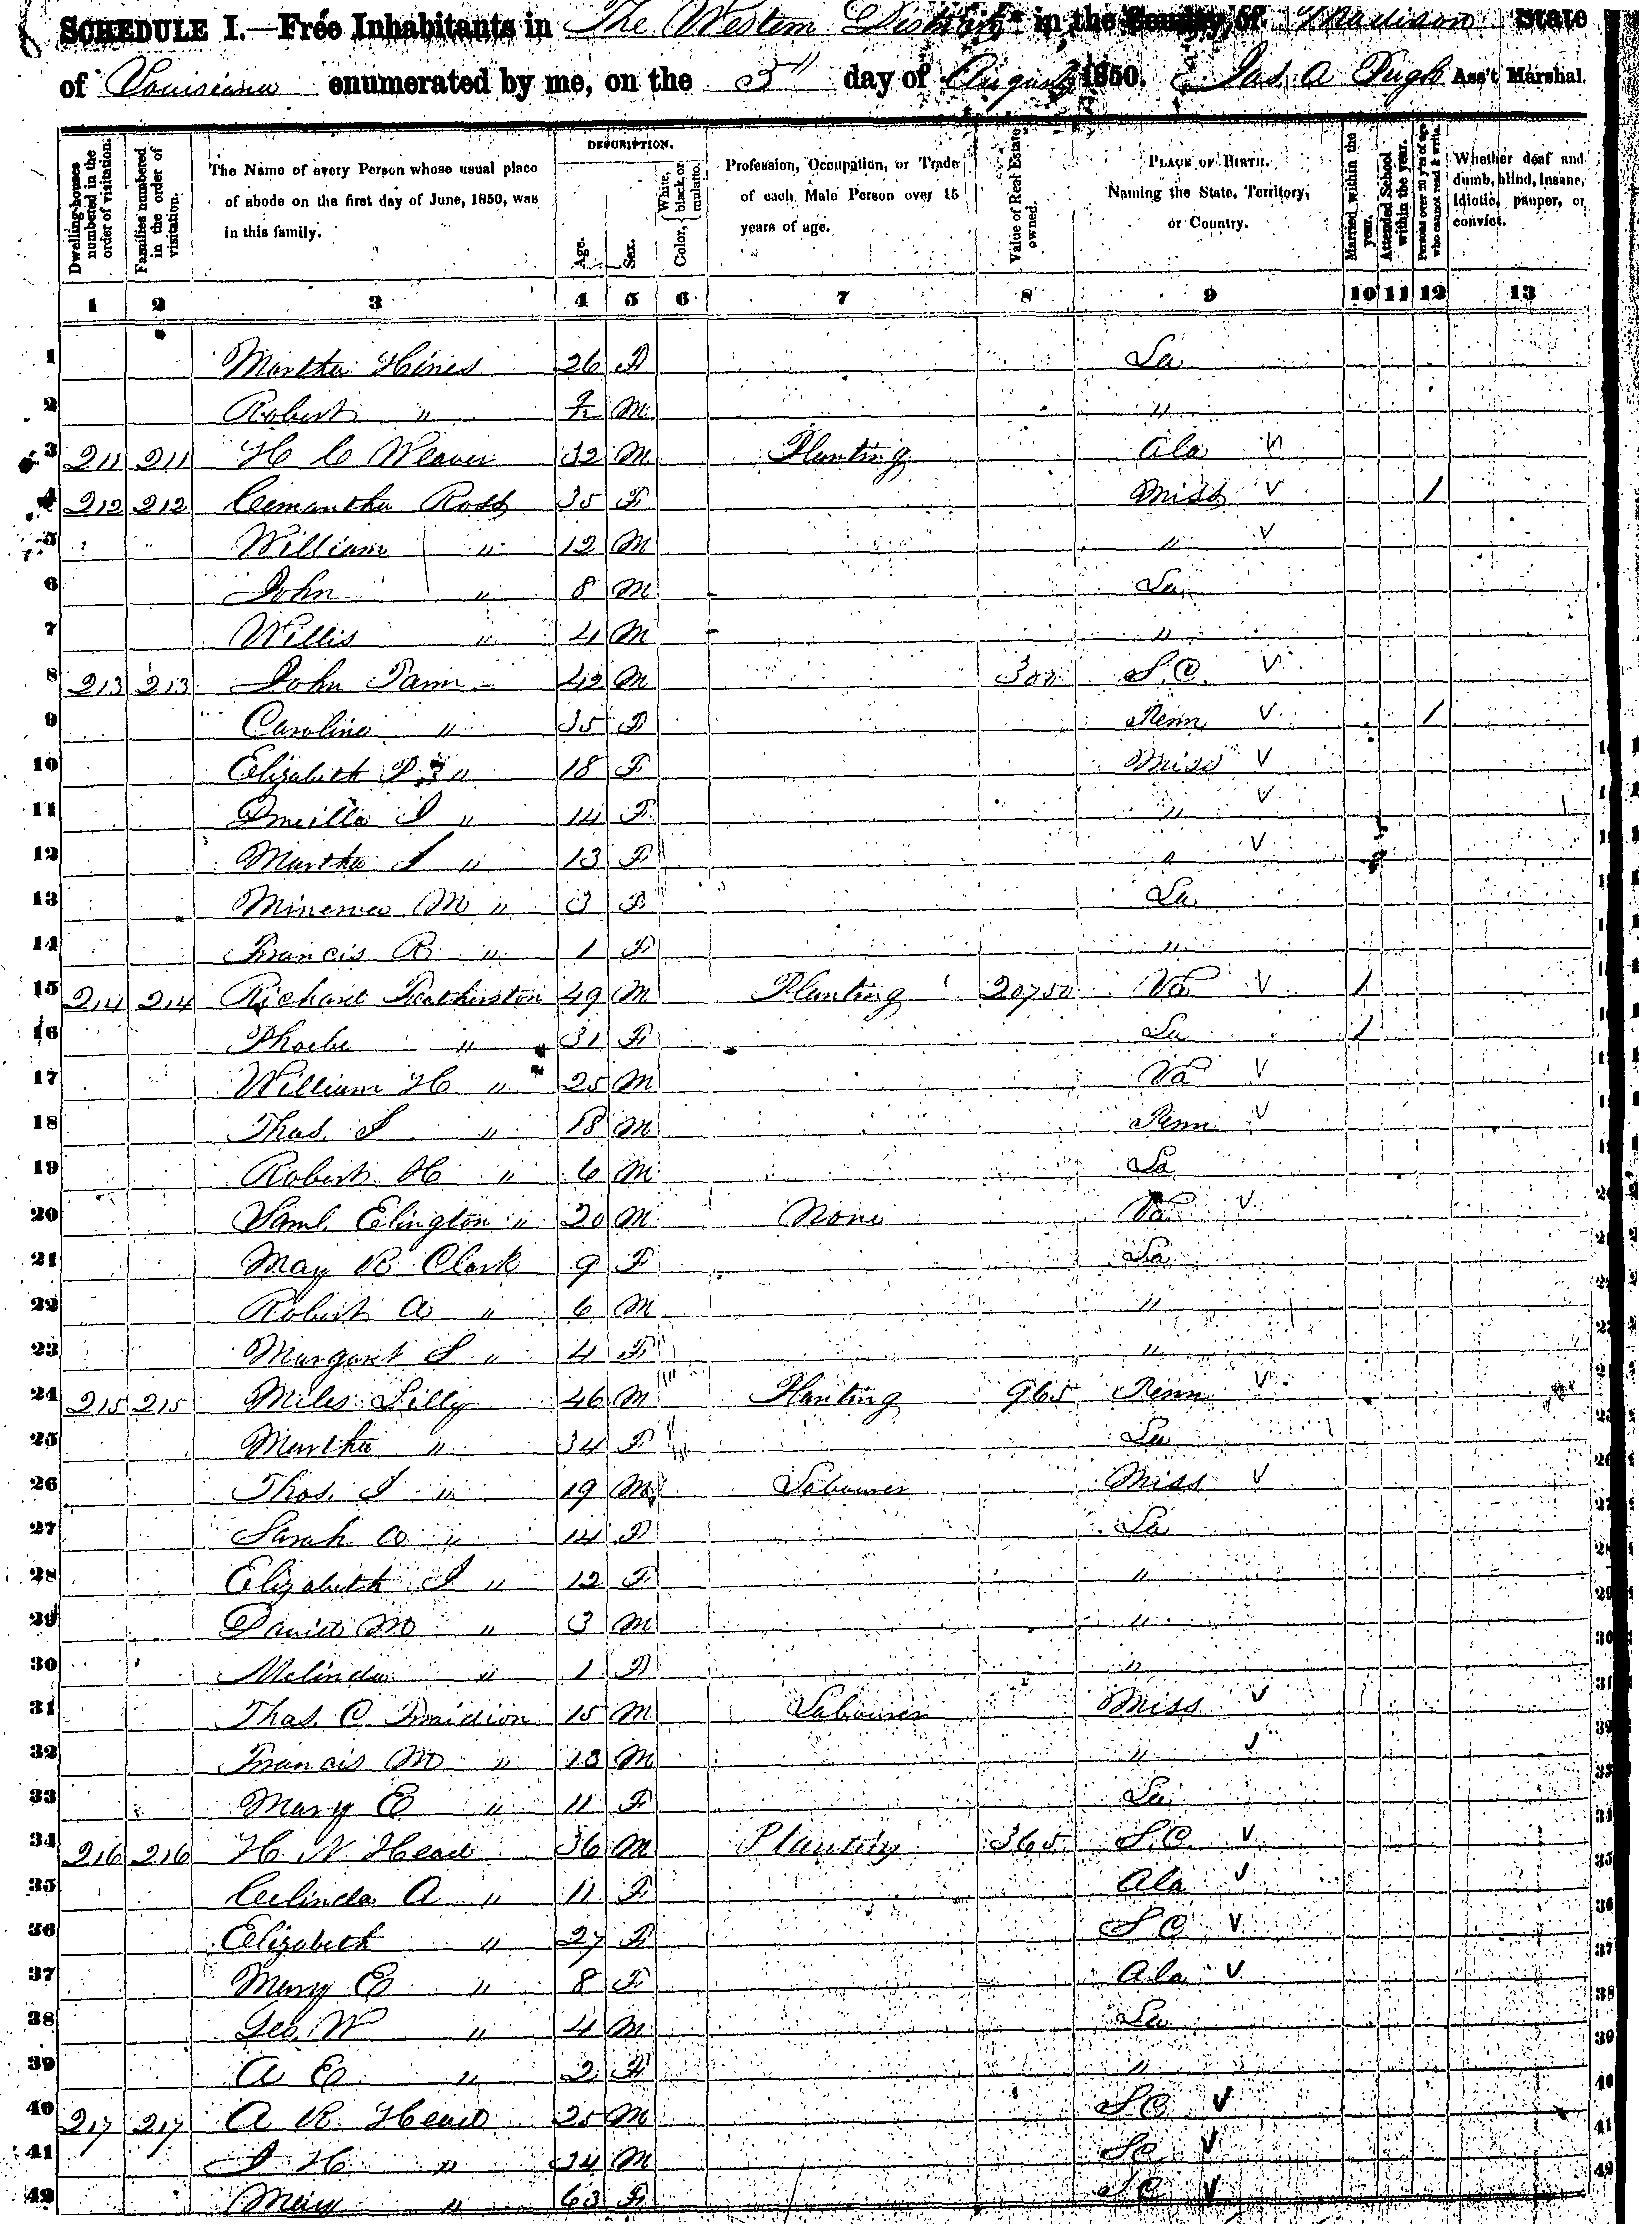 SCHEDULE I.—Free Inhabitants in The Western District in the County of Madison State
of Louisiana enumerated by me, on the 5" day of August 1850. Jas. A Pugh Ass't Marshal.
Dwelling-houses numbered in the order of visitation.
Families numbered in the order of visitation.
The Name of every Person whose usual place of abode on the first day of June, 1850, was in this family.
DESCRIPTION.
Age.
Sex.
Color, White, black or mulatto.
Profession, Occupation, or Trade of each Male Person over 15 years of age.
Value of Real Estate owned.
PLACE OF BIRTH. Naming the State, Territory, or Country.
Married within the year.
Attended School within the year.
Persons over 20 y'rs of age who cannot read & write.
Whether deaf and dumb, blind, insane, idiotic, pauper, or convict.
1 2 3 4 5 6 7 8 9 10 11 12 13
1 Martha Hines 26 F La
2 Robert " M "
3 211 211 H C Weaver 32 M Planting Ala V
4 212 212 Cemantha Ross 35 F Miss V /
5 William " 12 M " V
6 John " 8 M La
7 Willis " 4 M "
8 213 213 John 42 M 300 S.C. V
9 Caroline " 35 F Tenn V /
10 Elizabeth " 18 F Miss V
11 " 14 F " V
12 Martha J " 13 F " V
13 Minerva M " 3 F La
14 Francis R " 1 F "
15 214 214 Richard Featherston 49 M Planting 20750 Va V /
16 Phoebe " 31 F La /
17 William H " 25 M Va V
18 Thos. J " 18 M Tenn V
19 Robert H " 6 M La
20 Saml. Elington " 20 M None Va V
21 May R Clark 9 F La
22 Robert A " 6 M "
23 Margaret S " 4 F "
24 215 215 Miles Lilly 46 M Planting 965 Tenn V
25 Martha " 34 F La
26 Thos. J " 19 M Labourer Miss V
27 Sarah A " 14 F La
28 Elizabeth J " 12 F "
29 David M " 3 M "
30 Melinda " 1 F "
31 Thos. C 15 M Labourer Miss V
32 Francis M " 13 M " V
33 Mary E " 11 F La
34 216 216 H. N Head 36 M Planting 365 S.C. V
35 Celinda A " 11 F Ala V
36 Elizabeth " 27 F S C V
37 Mary E " 8 F Ala V
38 Geo. W " 4 M La
39 A E " 2 F "
40 217 217 A R Head 25 M S C V
41 J H " 24 M V
42 Mary " 63 F S C V